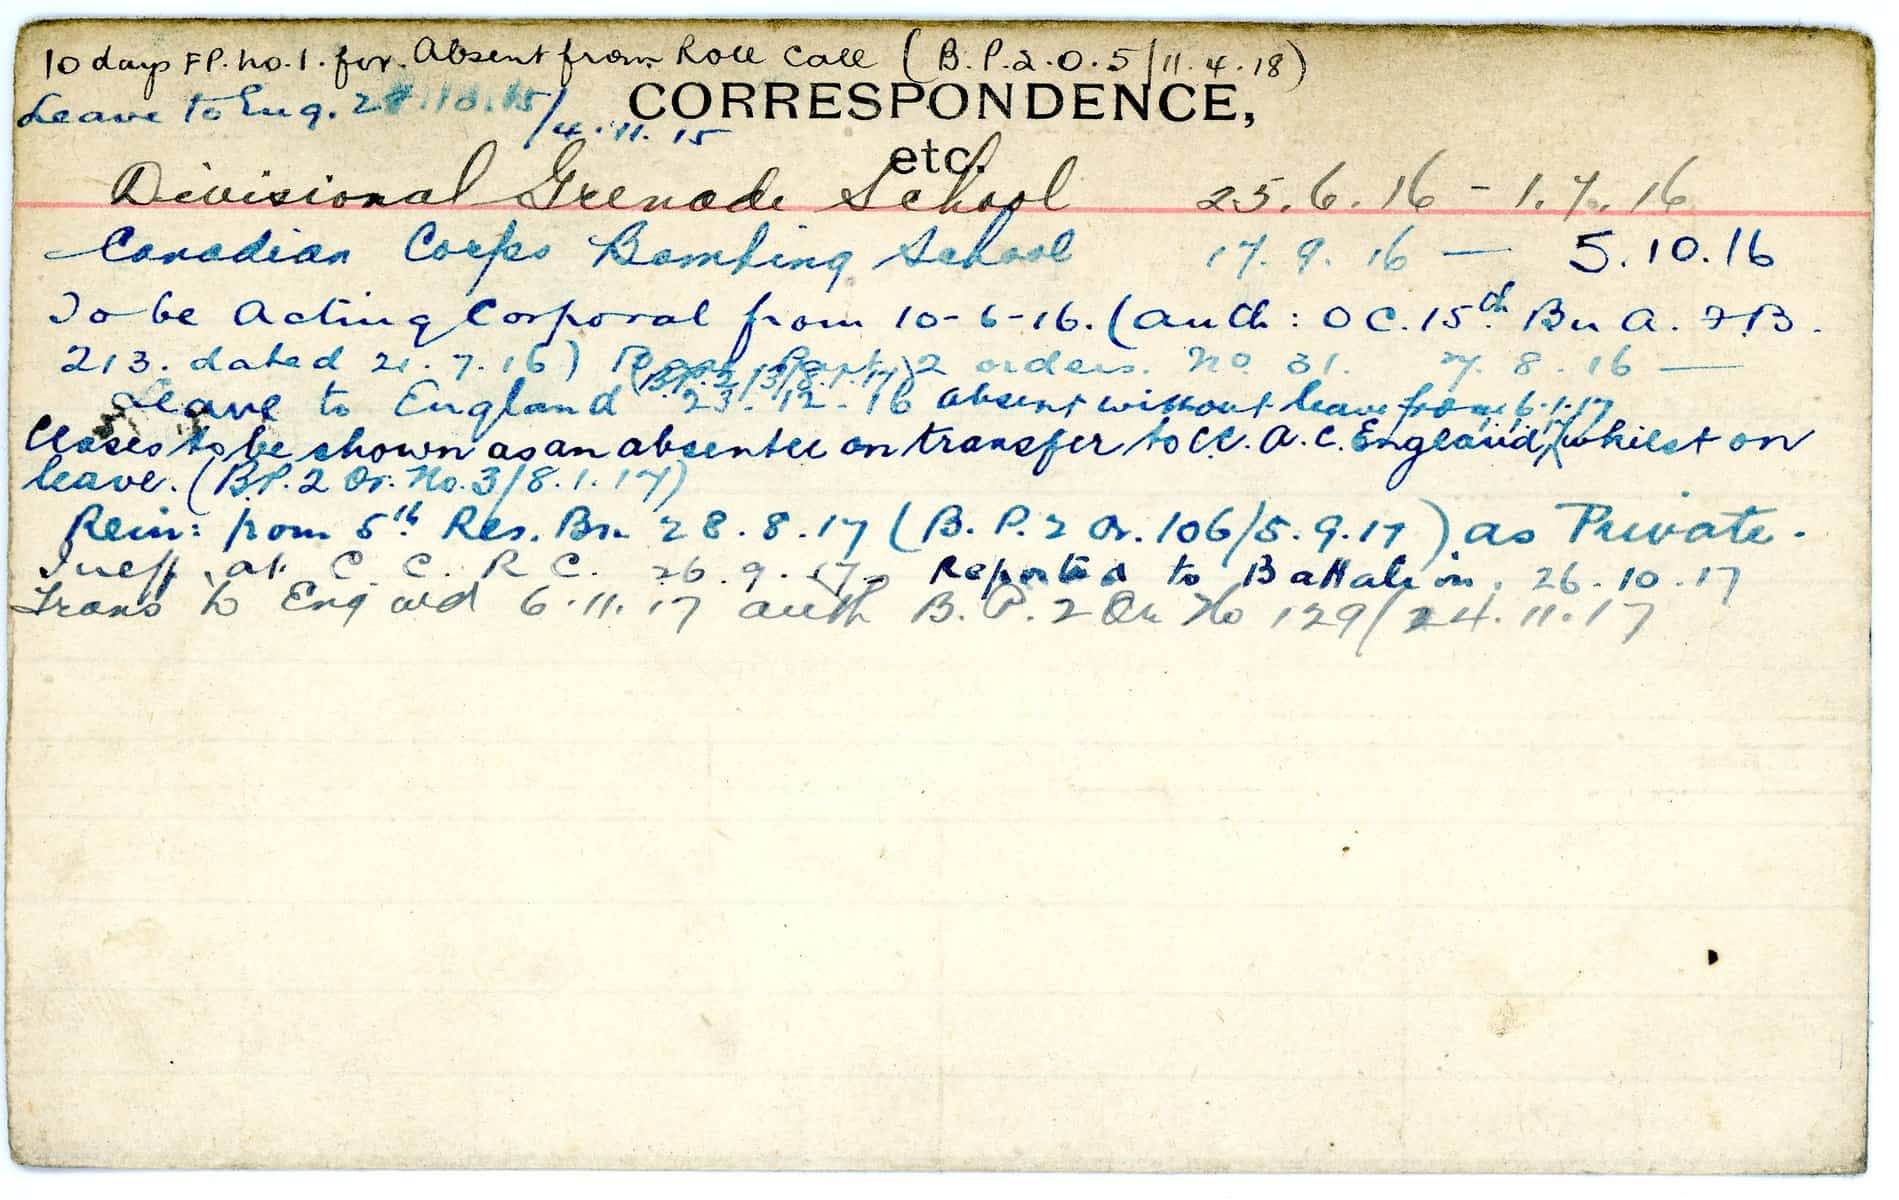 10 days F.P. no. 1. for. Absent from Roll Call (B.P.2.O.5/11.4.18)
Leave to Eng. /4.11.15
CORRESPONDENCE,
etc.
Divisional Grenade School 25.6.16 - 1.7.16
Canadian Corps Bombing School 17.9.16 — 5.10.16
To be Acting Corporal from 10-6-16. (Auth: OC. 15th Bn A.
213. dated 21.7.16) 2 orders. No 31. 7.8.16 —
(B.P.2/3/8.1.17)
Leave to England 23.12.16 absent without leave from 6.1.17
Closes to be shown as an absentee on transfer to C.C.A.C. England, whilst on
leave. (B.P.2 Or. No. 3/8.1.17)
Rein: from 5th Res. Bn. 28.8.17 (B.P.2 Or. 106/5.9.17) as Private.
Ineff at C.C.R.C. 26.9.17. Reported to Battalion. 26.10.17
Trans to England 6.11.17 auth B.P.2 Or No 129/24.11.17